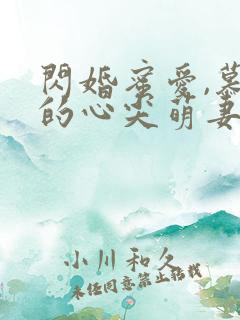 閃婚蜜愛,慕
的心尖萌妻
小川和久
未经同意禁止转载